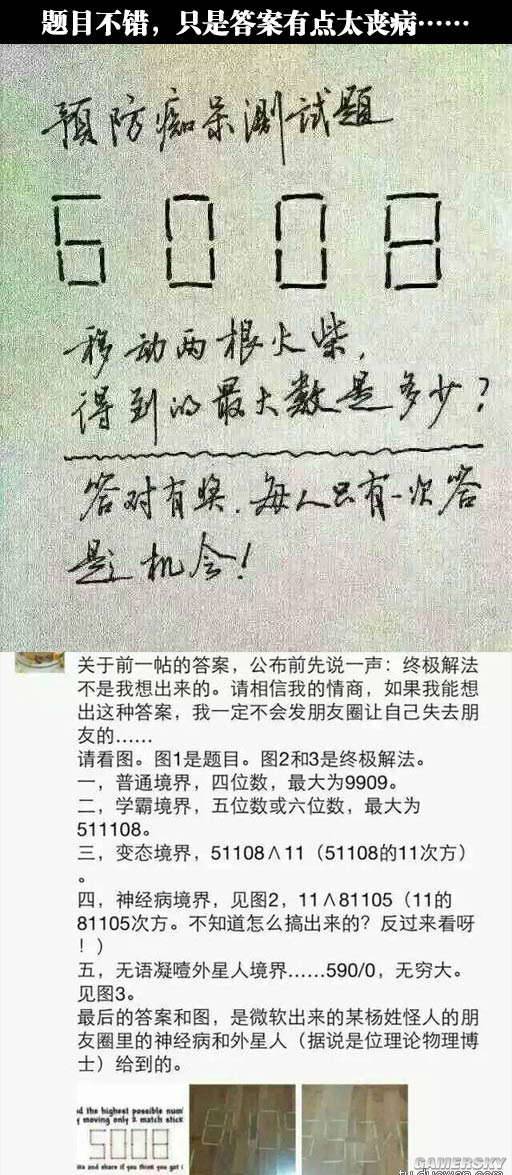 题目不错，只是答案有点太丧病……
预防痴呆测试题
6008
移动两根火柴，
得到的最大数是多少？
答对有奖．每人只有一次答
题机会！
关于前一帖的答案，公布前先说一声：终极解法
不是我想出来的。请相信我的情商，如果我能想
出这种答案，我一定不会发朋友圈让自己失去朋
友的……
请看图。图1是题目。图2和3是终极解法。
一，普通境界，四位数，最大为9909。
二，学霸境界，五位数或六位数，最大为
511108。
三，变态境界，51108∧11（51108的11次方）
。
四，神经病境界，见图2，11∧81105（11的
81105次方。不知道怎么搞出来的？反过来看呀
！）
五，无语凝噎外星人境界……590/0，无穷大。
见图3。
最后的答案和图，是微软出来的某杨姓怪人的朋
友圈里的神经病和外星人（据说是位理论物理博
士）给到的。
d the highest possible num
moving only 2 match stick
5008
and share if you think you got
GAMERSKY
tu.duowan.com